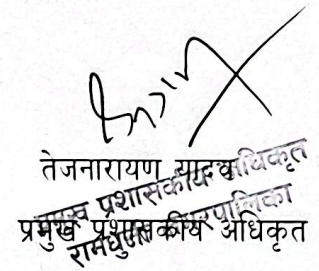 तेजनारायण यादव
प्रमुख प्रशासकीय अधिकृत
प्रमुख प्रशासकीय अधिकृत
रामधुनी नगरपालिका